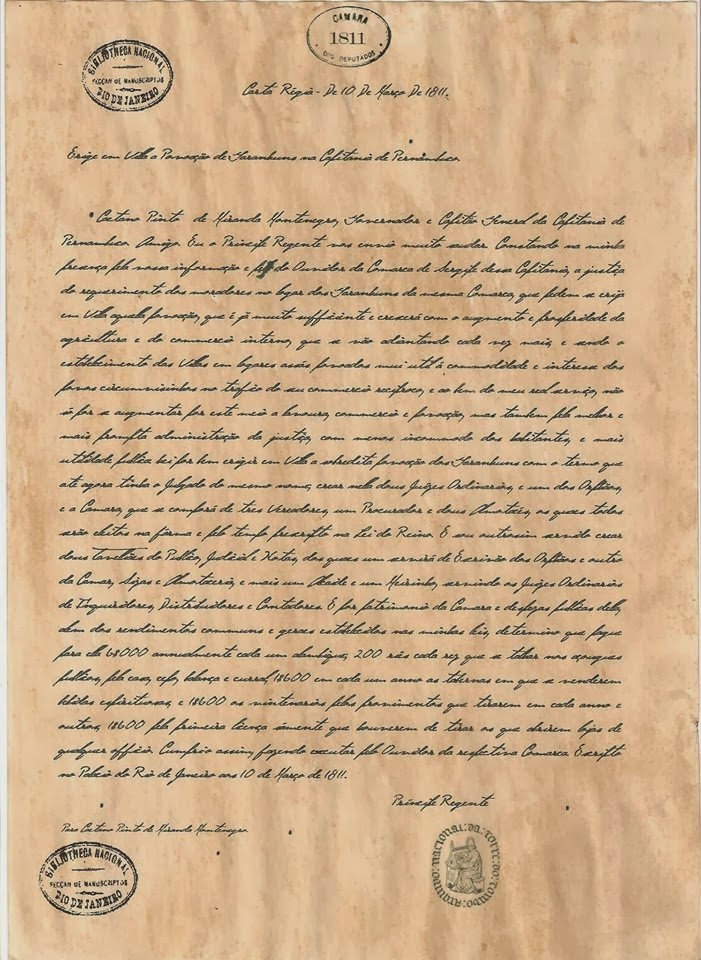 CAMARA
1811
DOS DEPUTADOS
BIBLIOTHECA NACIONAL
SECÇAM DE MANUSCRIPTOS
RIO DE JANEIRO
Carta Régia - De 10 De Março De 1811.
Erige em Villa a Povoação de Garanhuns na Capitania de Pernambuco.
Caetano Pinto de Miranda Montenegro, Governador e Capitão General da Capitania de
Pernambuco. Amigo. Eu o Principe Regente vos envio muito saudar. Constando na minha
presença pela vossa informação e pela do Ouvidor da Comarca de Sergipe dessa Capitania, a justiça
do requerimento dos moradores no logar dos Garanhuns da mesma Comarca, que pedem se erija
em Villa aquella povoação, que é já muito sufficiente e crescerá com o augmento e prosperidade da
agricultura e do commercio interno, que se vão adiantando cada vez mais, e sendo o
estabelecimento das Villas em logares assás povoados mui util á commodidade e interesse dos
povos circumvisinhos no trafico do seu commercio reciproco, e ao bem do meu real serviço, não
só por se augmentar por este meio a lavoura, commercio e povoação, mas tambem pela melhor e
mais prompta administração da justiça, com menos incommodo dos habitantes, e mais
utilidade publica, hei por bem erigir em Villa a sobredita povoação dos Garanhuns com o termo que
até agora tinha o Julgado do mesmo nome, crear nella dous Juizes Ordinarios, e um dos Orphãos,
e a Camara, que se comporá de tres Vereadores, um Procurador e dous Almotacés, os quaes todos
serão eleitos na fórma e pelo tempo prescripto na Lei do Reino. E sou outrosim servido crear
dous Tabelliães do Publico, Judicial e Notas, dos quaes um servirá de Escrivão dos Orphãos e outro
da Camar, Sizas e Almotaceria, e mais um Alcaide e um Meirinho, servindo os Juizes Ordinarios
de Inquiridores, Distribuidores e Contadores. E por patrimonio da Camara e despezas publicas della,
alem dos rendimentos communs e geraes estabelecidos nas minhas leis, determino que pague
para ella 6$000 annualmente cada um alambique, 200 réis cada rez que se talhar nos açougues
publicos, pela casa, cepo, balança e curral, 1$600 em cada um anno as tabernas em que se venderem
bebidas espirituosas, e 1$600 os vintenarios pelos provimentos que tirarem em cada anno e
outros, 1$600 pela primeira licença sómente que houverem de tirar os que abrirem lojas de
qualquer officio. Cumprio assim, fazendo executar pelo Ouvidor da respectiva Comarca. Escripto
no Palacio do Rio de Janeiro aos 10 de Março de 1811.
Principe Regente
Para Caetano Pinto de Miranda Montenegro
BIBLIOTHECA NACIONAL
SECÇAM DE MANUSCRIPTOS
RIO DE JANEIRO
ARQUIVO NACIONAL DA TORRE DO TOMBO